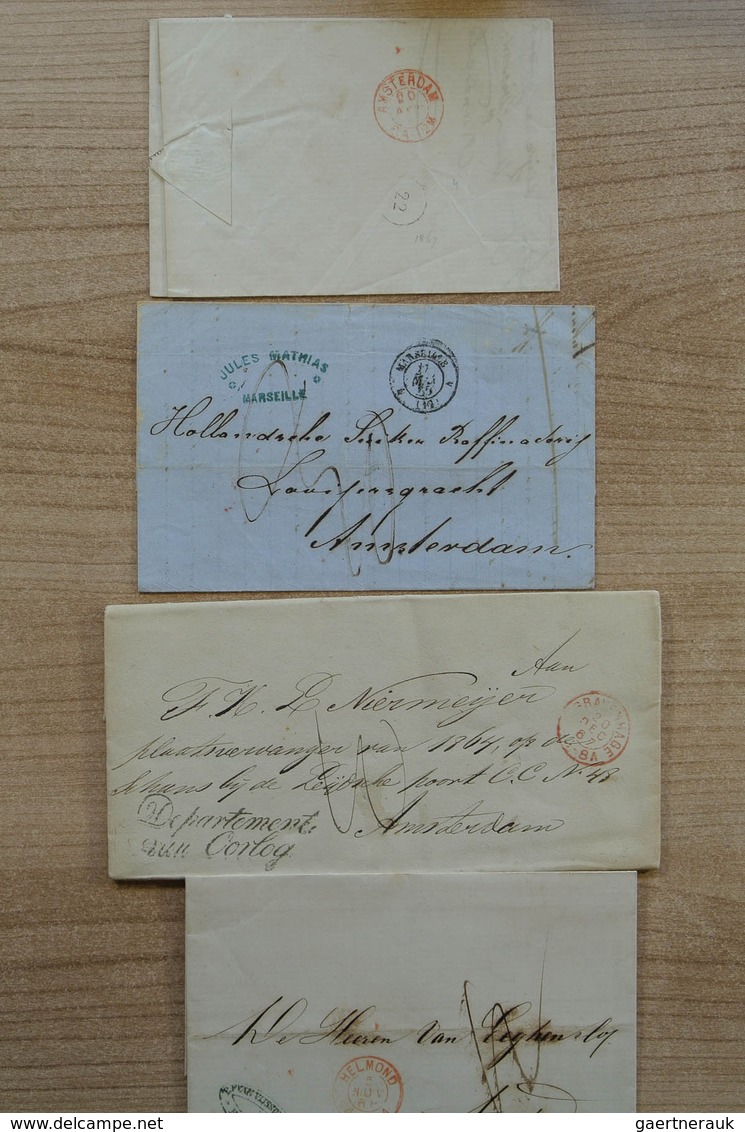 AMSTERDAM
22
1867
JULES MATHIAS
MARSEILLE
MARSEILLE
Hollandsche Suiker Raffinaderij
Looijersgracht
Amsterdam.
Aan
F. H. L Niermeijer
plaatsvervanger van 1864, op de
Schans bij de Leidsche poort C.C. No 48
Amsterdam
Departement
van Oorlog
'S GRAVENHAGE
20
DEC
De Heeren Van Eeghen
HELMOND
5
NOV
gaertnerauk